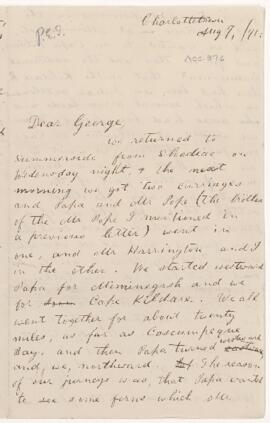 P.E.I.
Charlottetown
Aug 7, /
Acc 976
Dear George,
We returned to
Summerside from Shediac on
Wednesday night, & the next
morning we got two carriages
and Papa and Mr Pope (the brother
of the Mr Pope I mentioned in
a previous letter) went in
one, and Mr Harrington and I
in the other. We started westward
Papa for Miminegash and we
for Cape Kildare. We all
went together for about twenty
miles, as far as Cascumpeque
Bay, and then Papa turned westward
and, we, northward. The reason
of our journeys was, that Papa
to see some ferns which Mr.